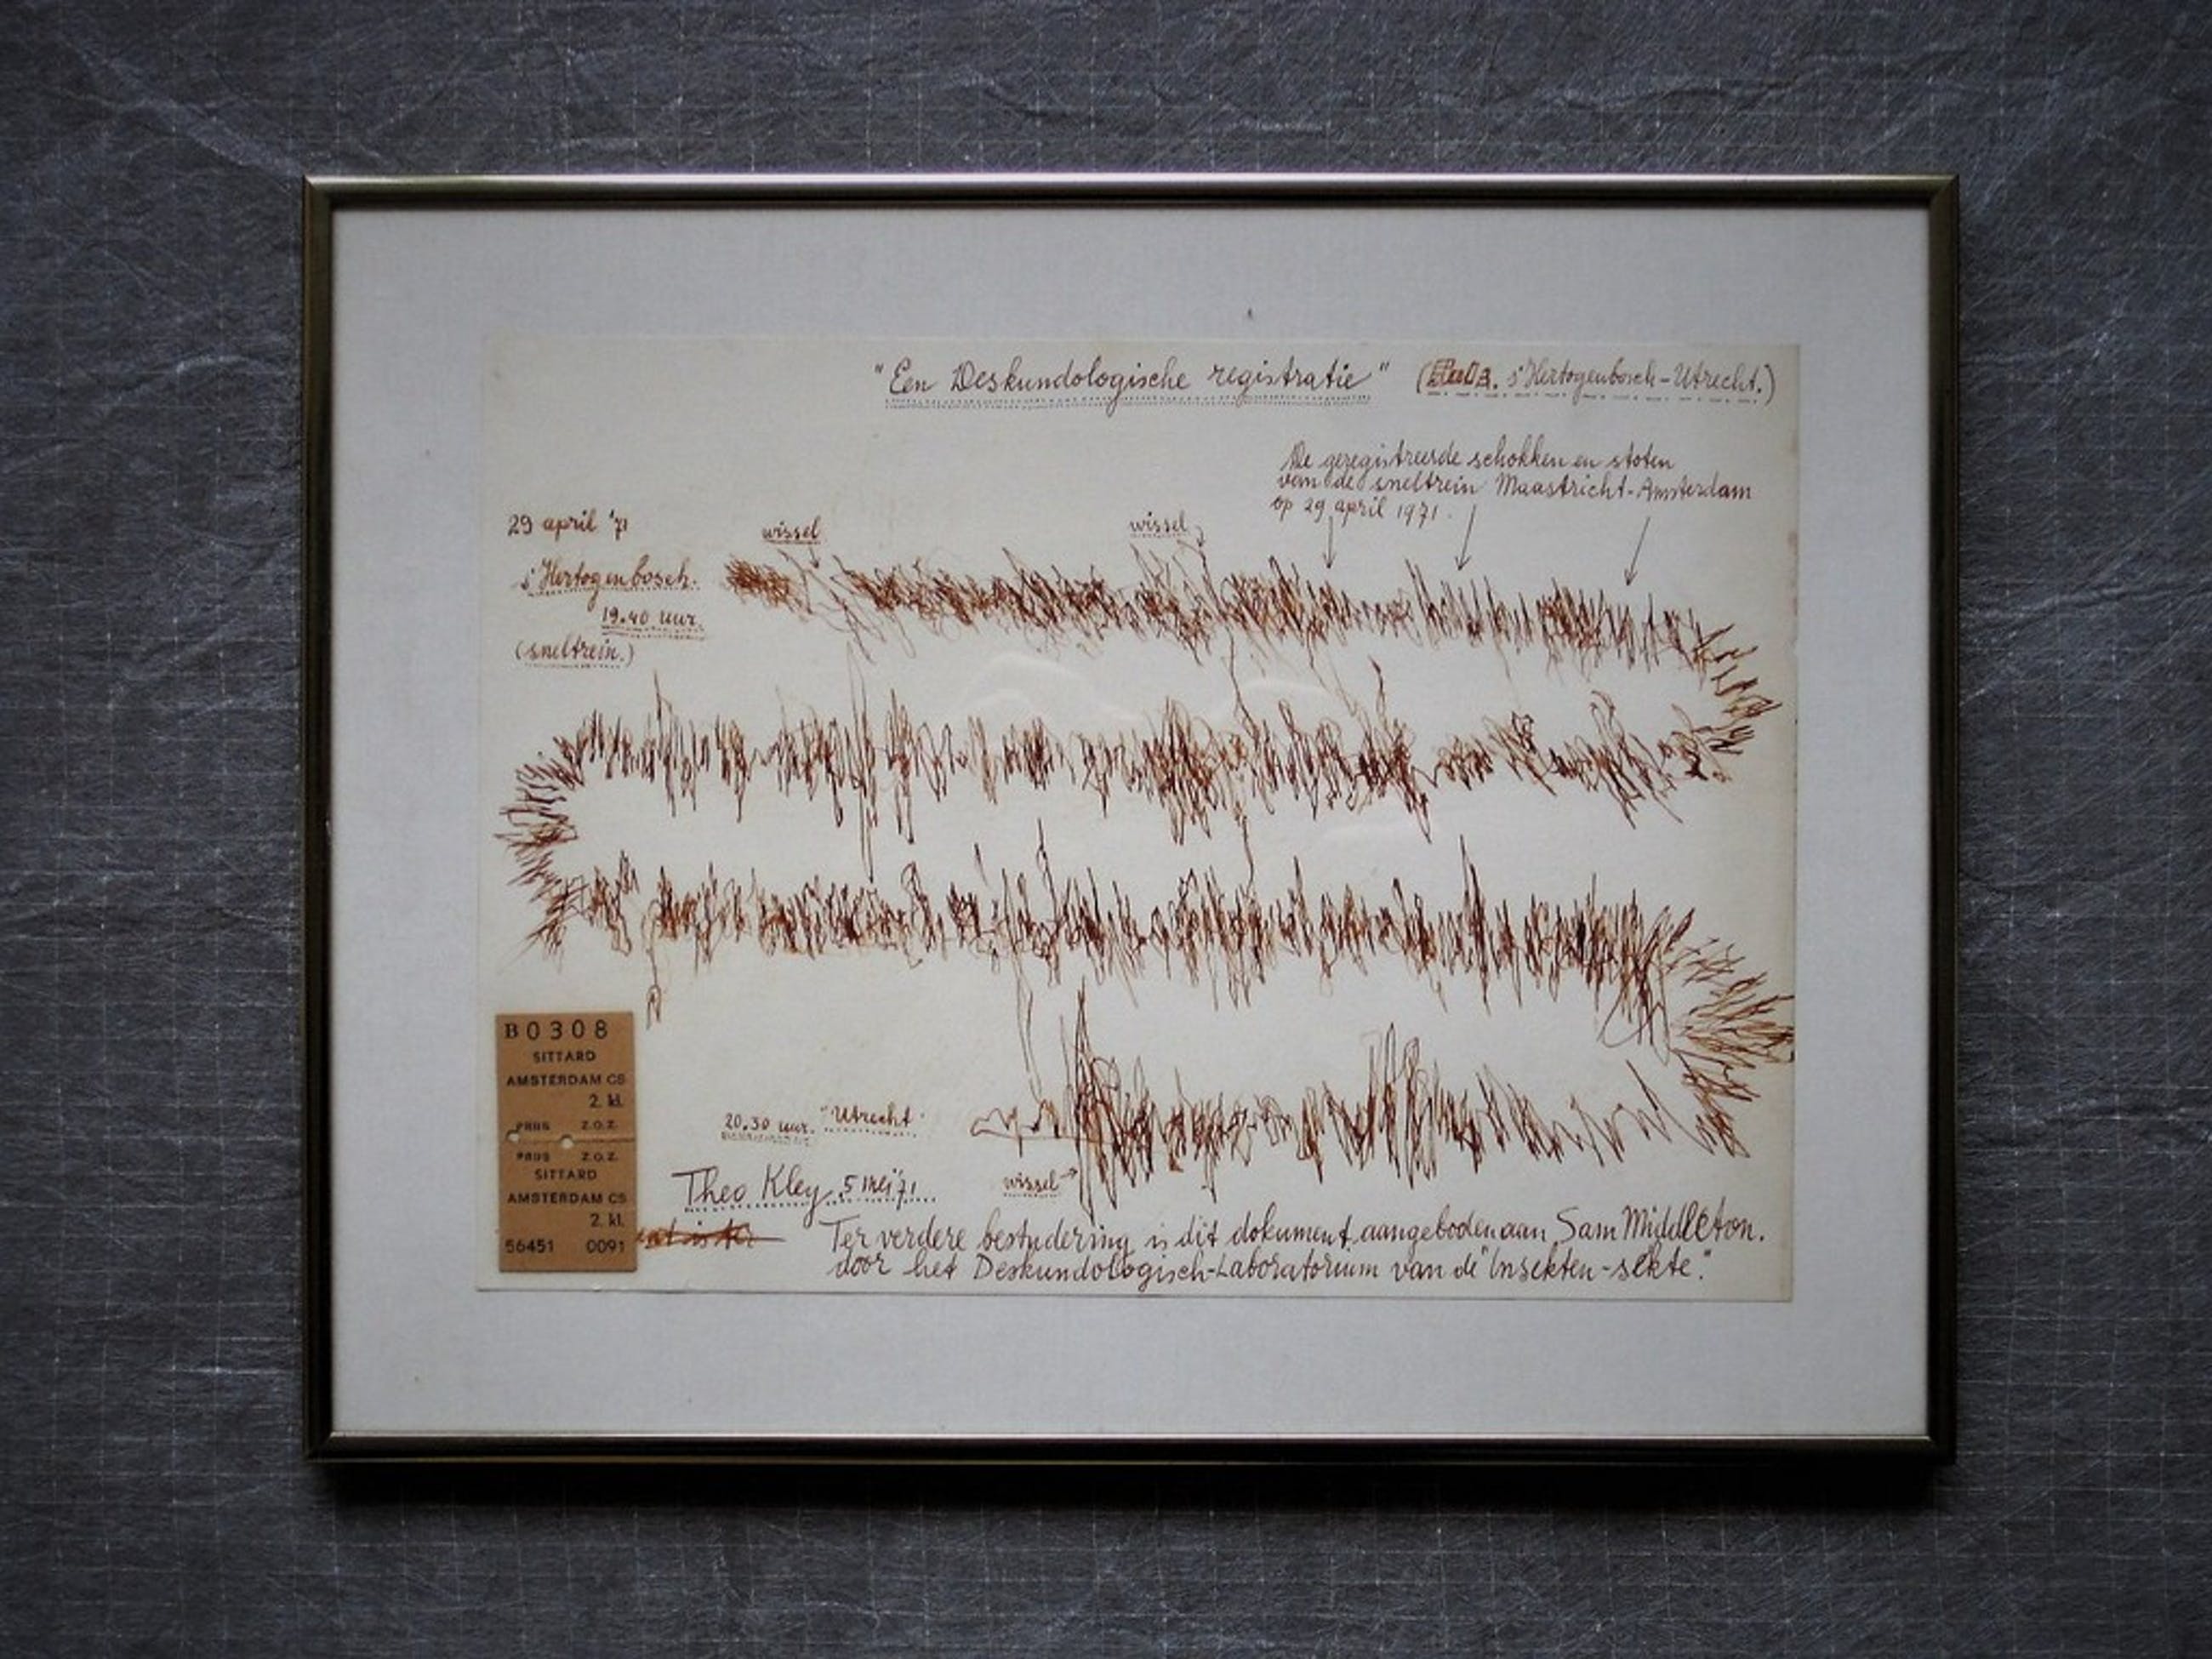 "Een Deskundologische registratie" ( s'Hertogenbosch-Utrecht.)
De geregistreerde schokken en stoten
van de sneltrein Maastricht-Amsterdam
op 29 april 1971.
29 april '71
wissel
wissel
s'Hertogenbosch.
19.40 uur.
(sneltrein.)
B0308
SITTARD
AMSTERDAM CS
2. kl.
Z.O.Z.
Z.O.Z.
SITTARD
AMSTERDAM CS
2. kl.
56451 0091
20.30 uur. "Utrecht"
wissel
Theo Kley 5 mei '71
Ter verdere bestudering is dit dokument aangeboden aan Sam Middleton.
door het Deskundologisch-Laboratorium van de "Insekten-sekte".